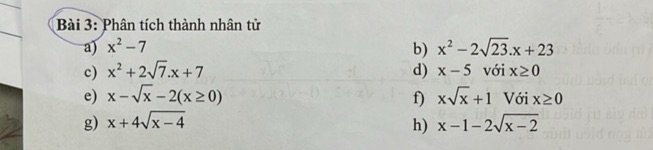 Bài 3: Phân tích thành nhân tử
a) x² – 7
b) x² – 2√23.x + 23
c) x² + 2√7.x + 7
d) x – 5 với x ≥ 0
e) x – √x – 2(x ≥ 0)
f) x√x + 1 Với x ≥ 0
g) x + 4√(x – 4)
h) x – 1 – 2√(x – 2)